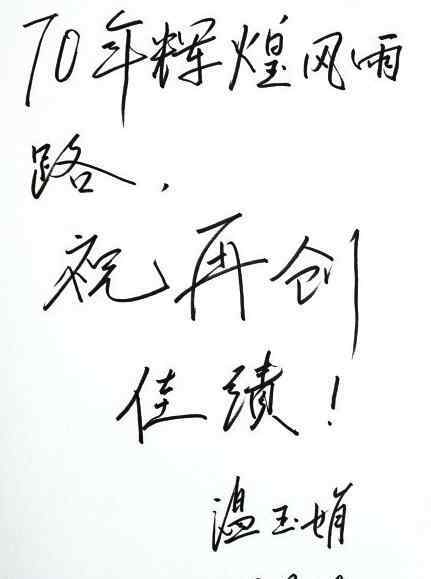 70年辉煌风雨
路,
祝再创
佳绩!
温玉娟